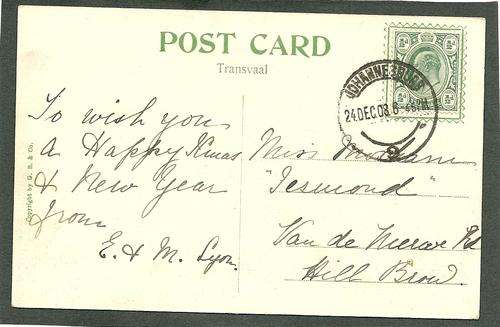 POST CARD
Transvaal
JOHANNESBURG
24 DEC 08 6
To wish you
a Happy Xmas
& New Year
from
E. & M. Lyon.
Miss
"Jesmond"
Van de Merwe Rd
Hill Brow.
Copyright by G. B. & Co.